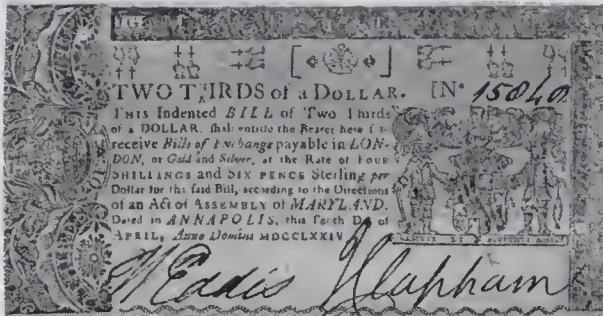 TWO THIRDS of a DOLLAR. [No 15840
THIS Indented BILL of Two Thirds
of a DOLLAR, shall entitle the Bearer here f t
receive Bills of Exchange payable in LON-
DON, or Gold and Silver, at the Rate of FOUR
SHILLINGS and SIX PENCE Sterling per
Dollar for the said Bill, according to the Directions
of an Act of ASSEMBLY of MARYLAND.
Dated in ANNAPOLIS, this Day of
APRIL, Anno Domini MDCCLXXIV.
W Eddis J Clapham